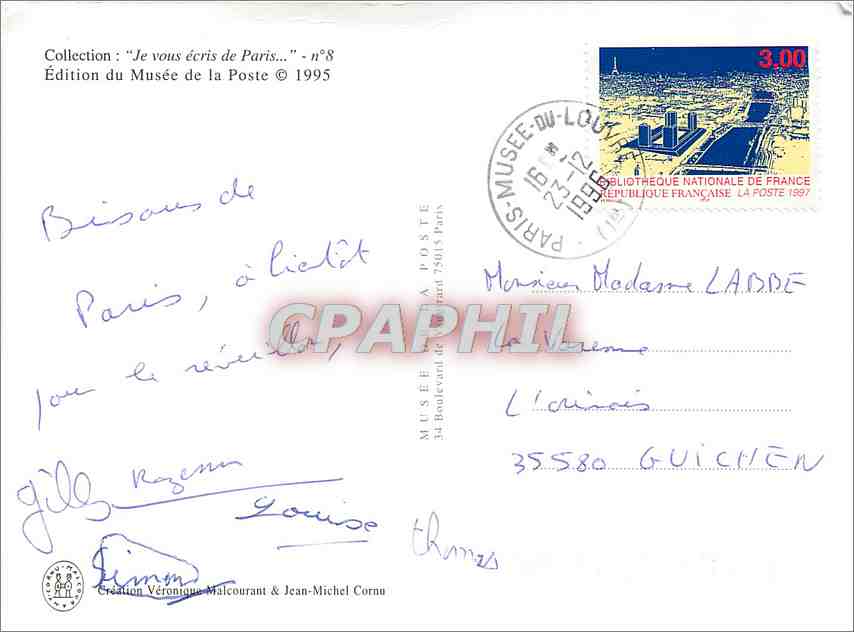 Collection : "Je vous écris de Paris..." - n°8
Édition du Musée de la Poste © 1995
3,00
BIBLIOTHEQUE NATIONALE DE FRANCE
RÉPUBLIQUE FRANÇAISE LA POSTE 1997
PARIS-MUSEE-DU-LOUVRE (1er)
16H
23-12
1996
Bisous de
Paris, à bientôt
pour le réveillon,
gilles
Louise
Simon
thomas
MUSÉE DE LA POSTE
34 Boulevard de Vaugirard 75015 Paris
Monsieur Madame LABBE
La Varenne
35580 GUICHEN
CPAPHIL
CORNU-MALCOURANT
Création Véronique Malcourant & Jean-Michel Cornu